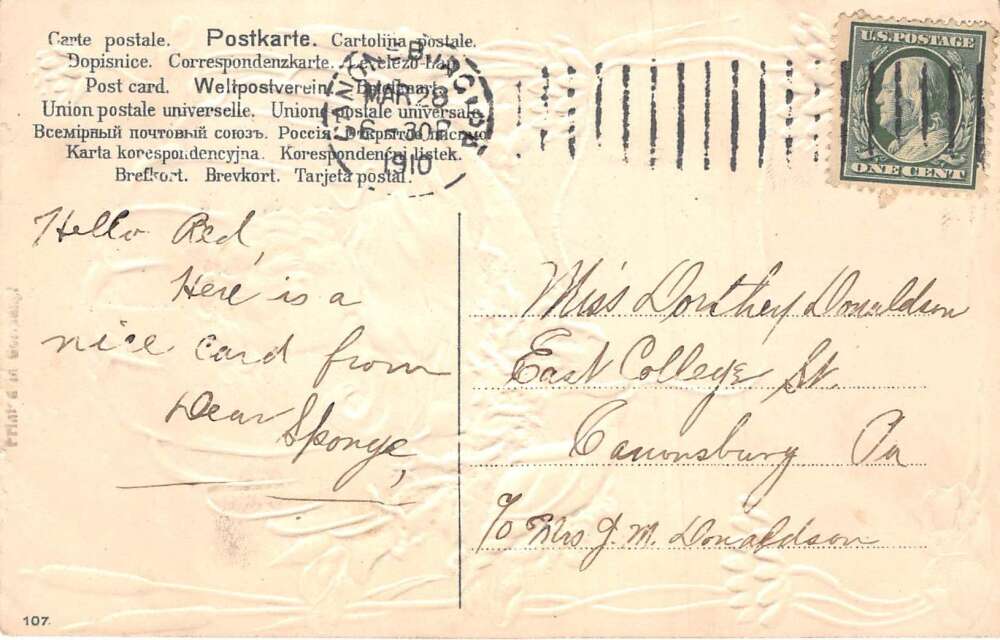 Carte postale. Postkarte. Cartolina postale.
Dopisnice. Correspondenzkarte. Levelező-lap.
Post card. Weltpostverein.
Union postale universelle. Unione postale universale.
Всемірный почтовый союзъ. Россія. Открытое письмо
Karta korespondencyjna. Korespondenční listek.
Brefkort. Brevkort. Tarjeta postal.
MAR 28
1910
U.S. POSTAGE
ONE CENT
Hello Red,
Here is a
nice card from
Dear Sponge,
Miss Dorthey Donaldson
East College St.
Canonsburg Pa
c/o Mrs J. M. Donaldson
Printed in Germany
107